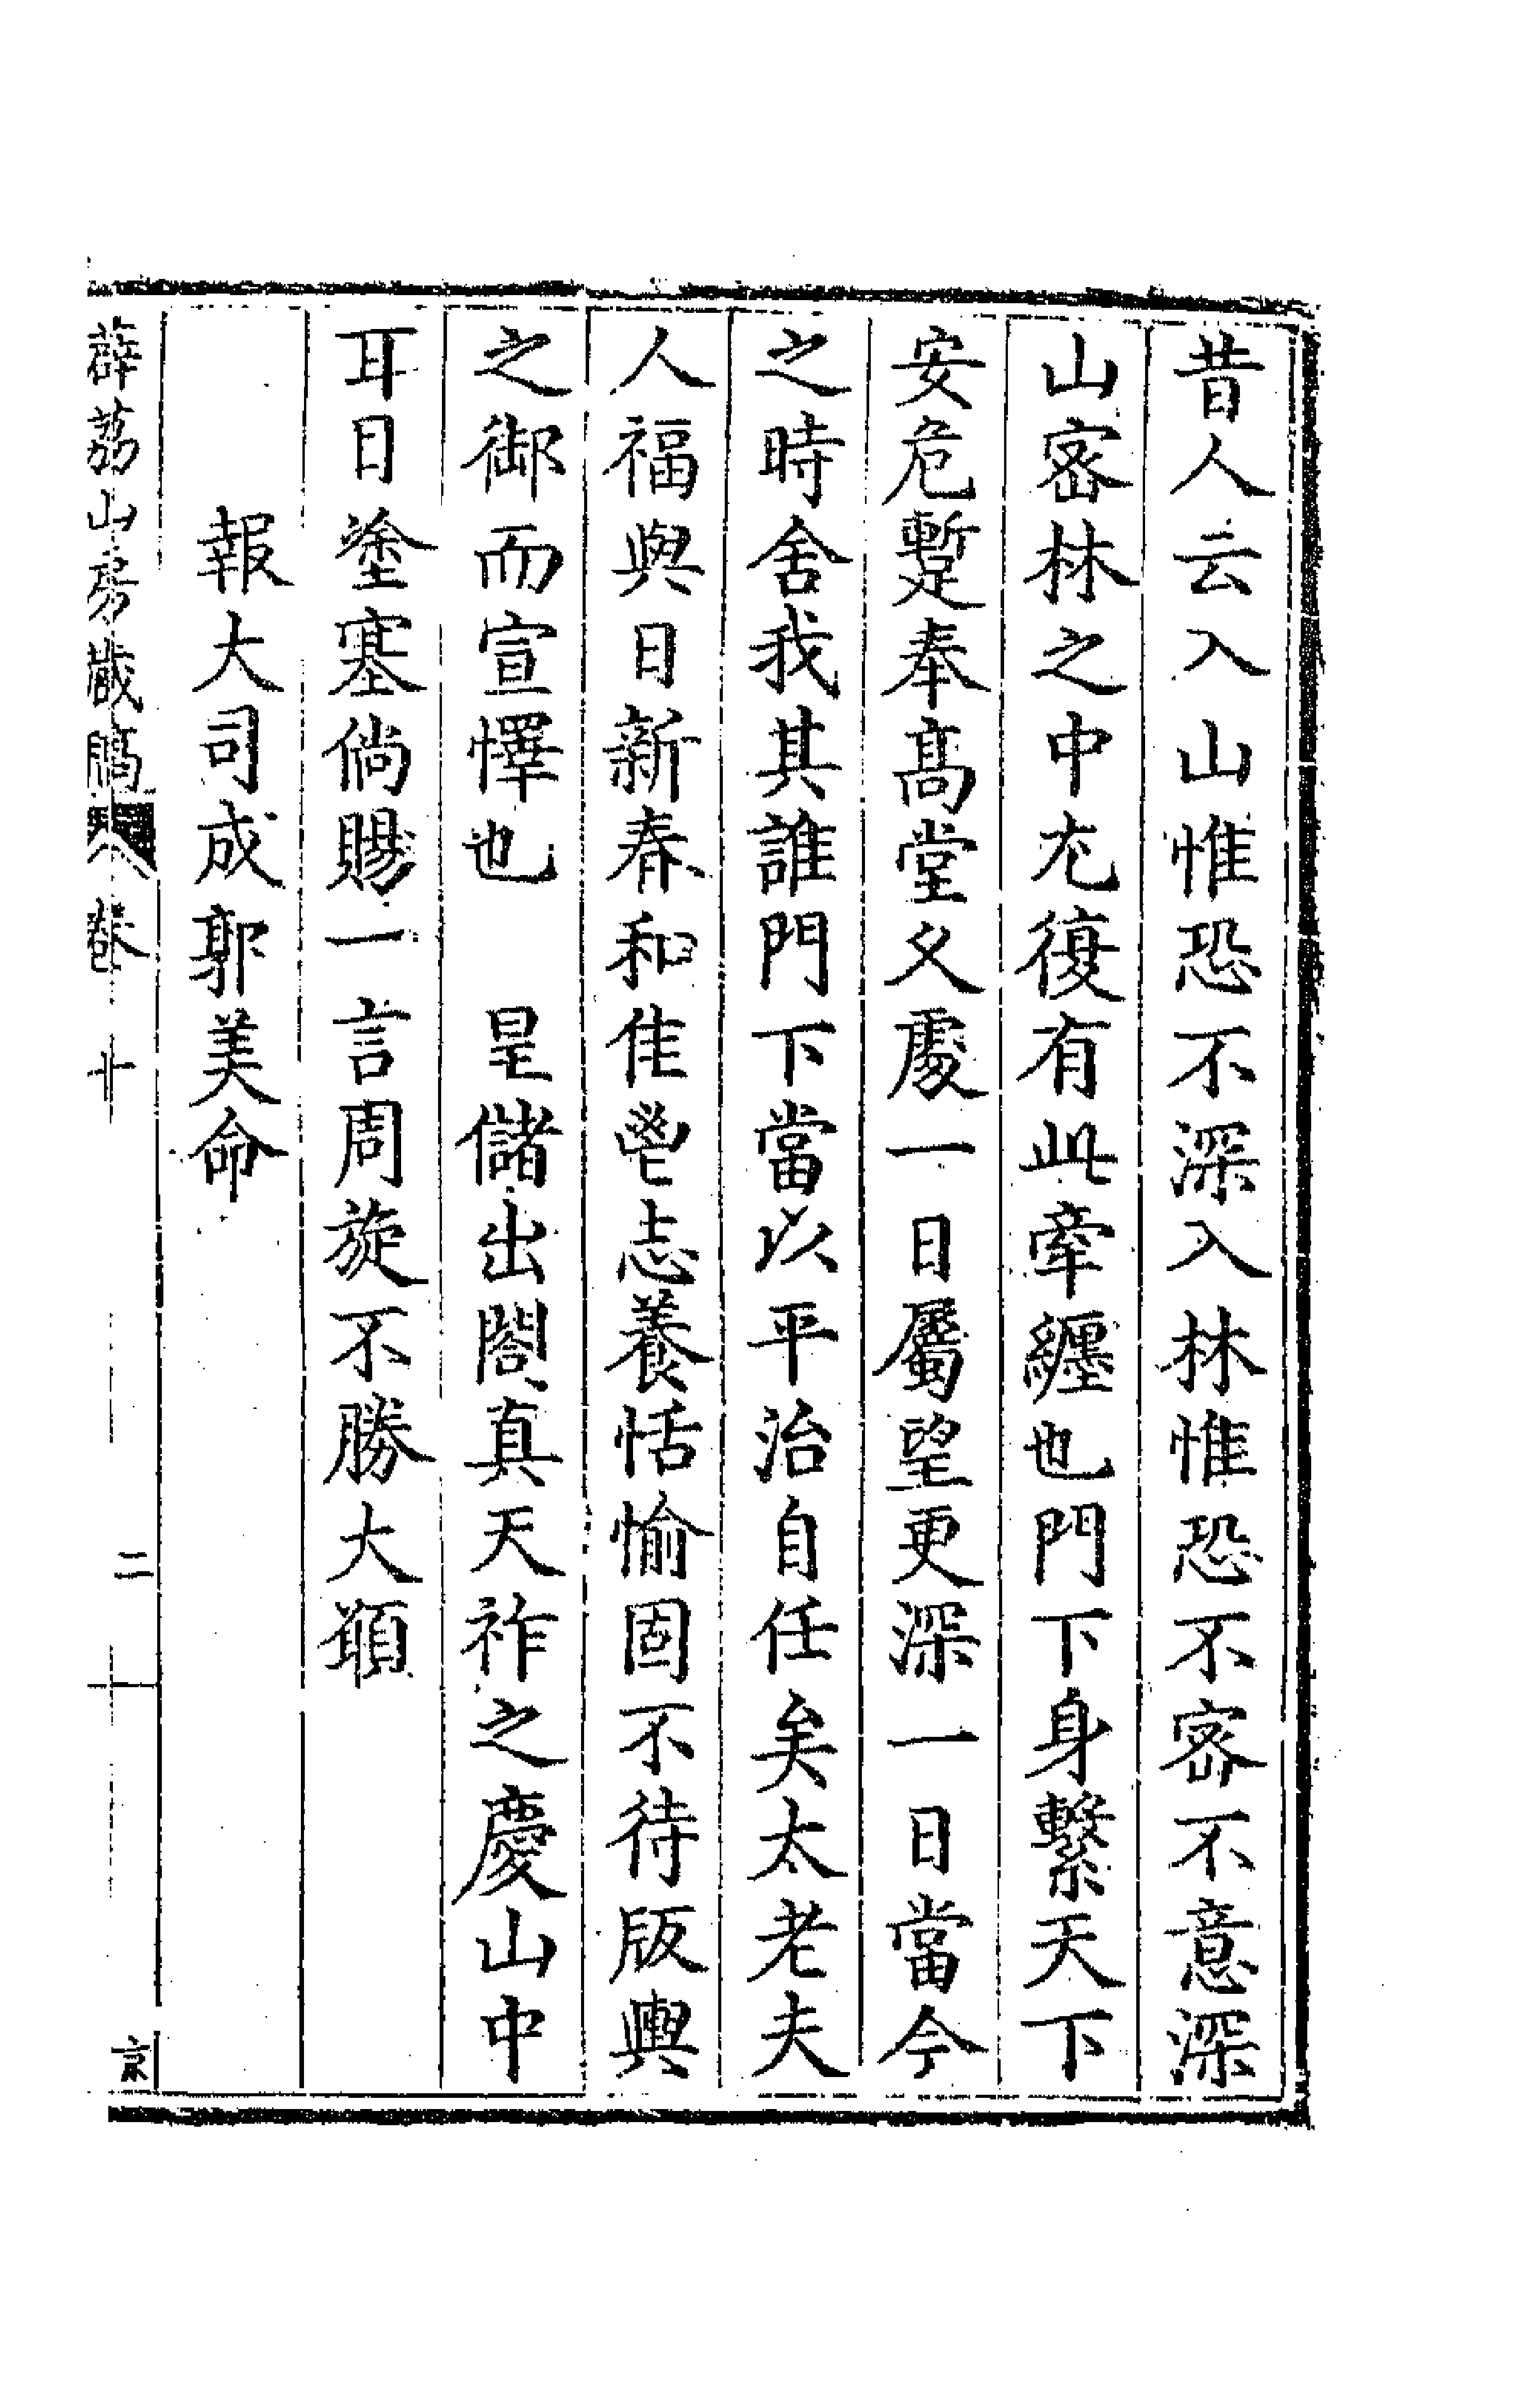 昔人云入山惟恐不深入林惟恐不密不意深
山密林之中尤復有此牽纏也門下身繫天下
安危蹔奉高堂乂處一日屬望更深一日當今
之時舍我其誰門下當以平治自任矣太老夫
人福與日新春和佳鬯志養恬愉固不待版輿
之御而宣懌也　皇儲出閣真天祚之慶山中
耳目塗塞倘賜一言周旋不勝大願
報大司成郭美命
薜荔山房藏稿　卷十　二